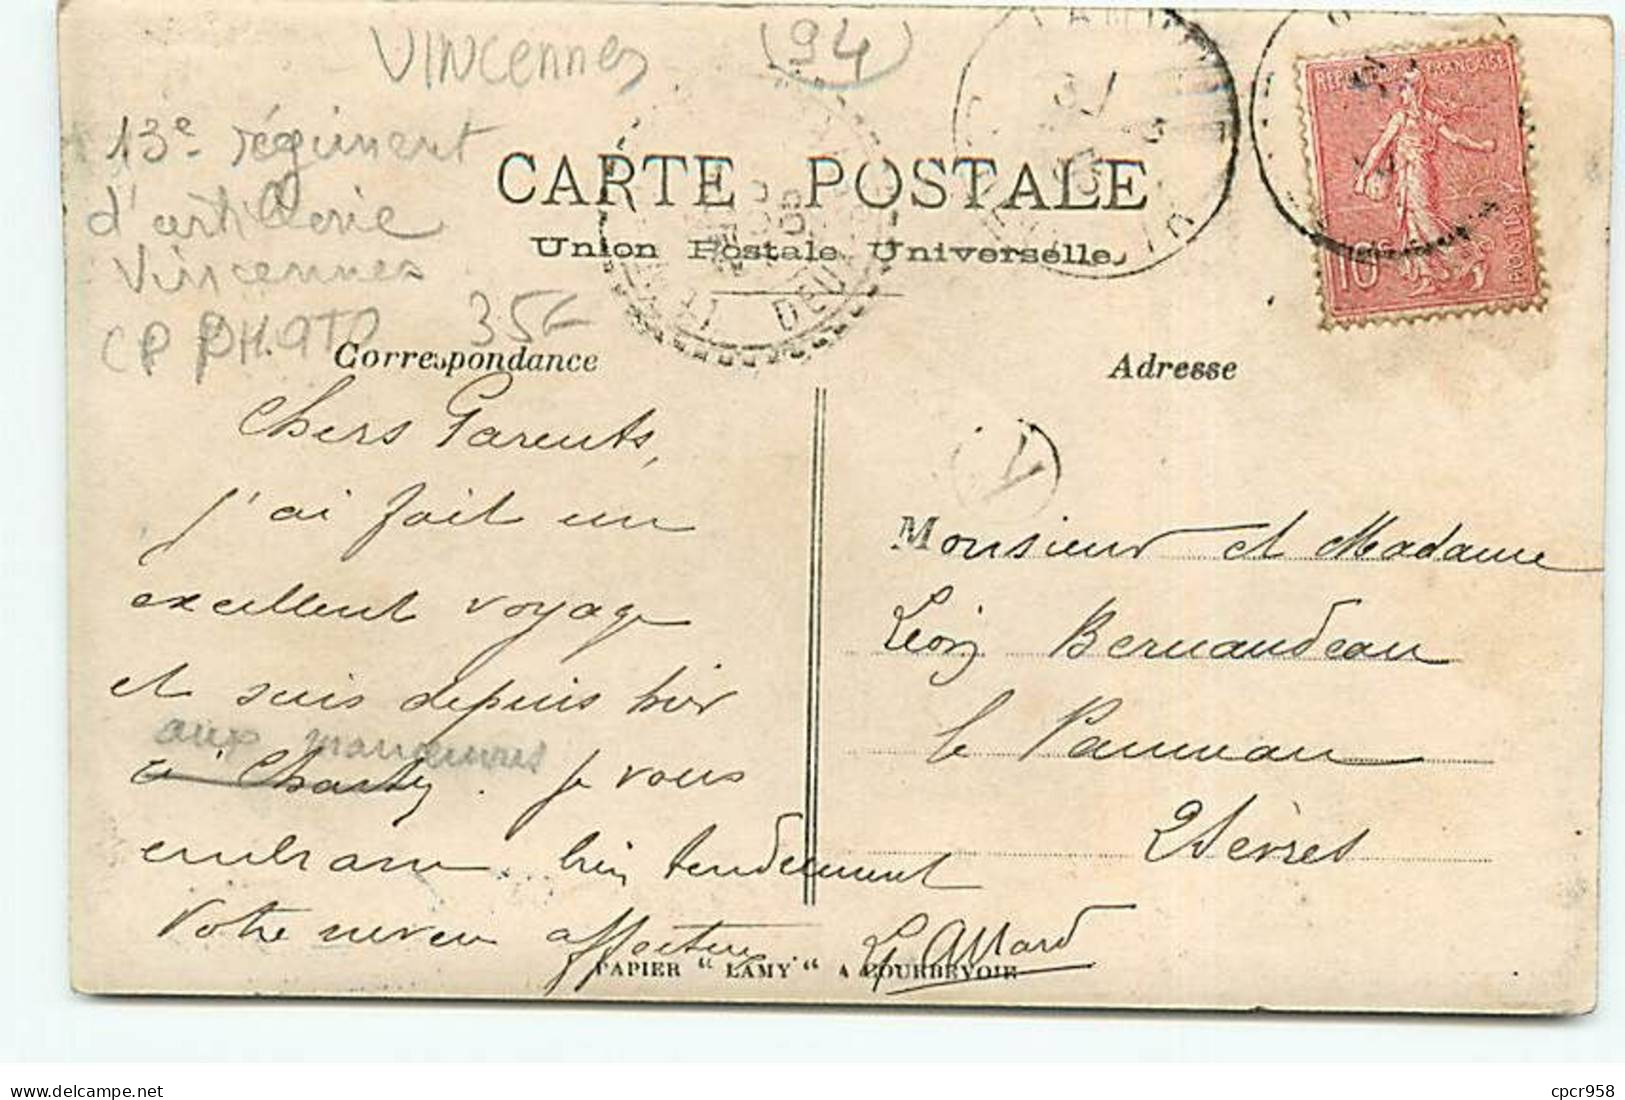 VINCennes (94)
13e régiment
d'artillerie
Vincennes
CP PHOTO 35€
CARTE POSTALE
Union Postale Universelle
REPUBLIQUE FRANÇAISE
10c POSTES
Correspondance
Adresse
Chers Parents,
j'ai fait un
excellent voyage
et suis depuis hier
aux manœuvres
à Je vous
embrasse bien tendrement
Votre neveu affectueux
L Allard
Monsieur et Madame
Léon Bernaudeau
le
2 Sèvres
PAPIER "LAMY" A COURBEVOIE
Delcampe.net
cpcr958